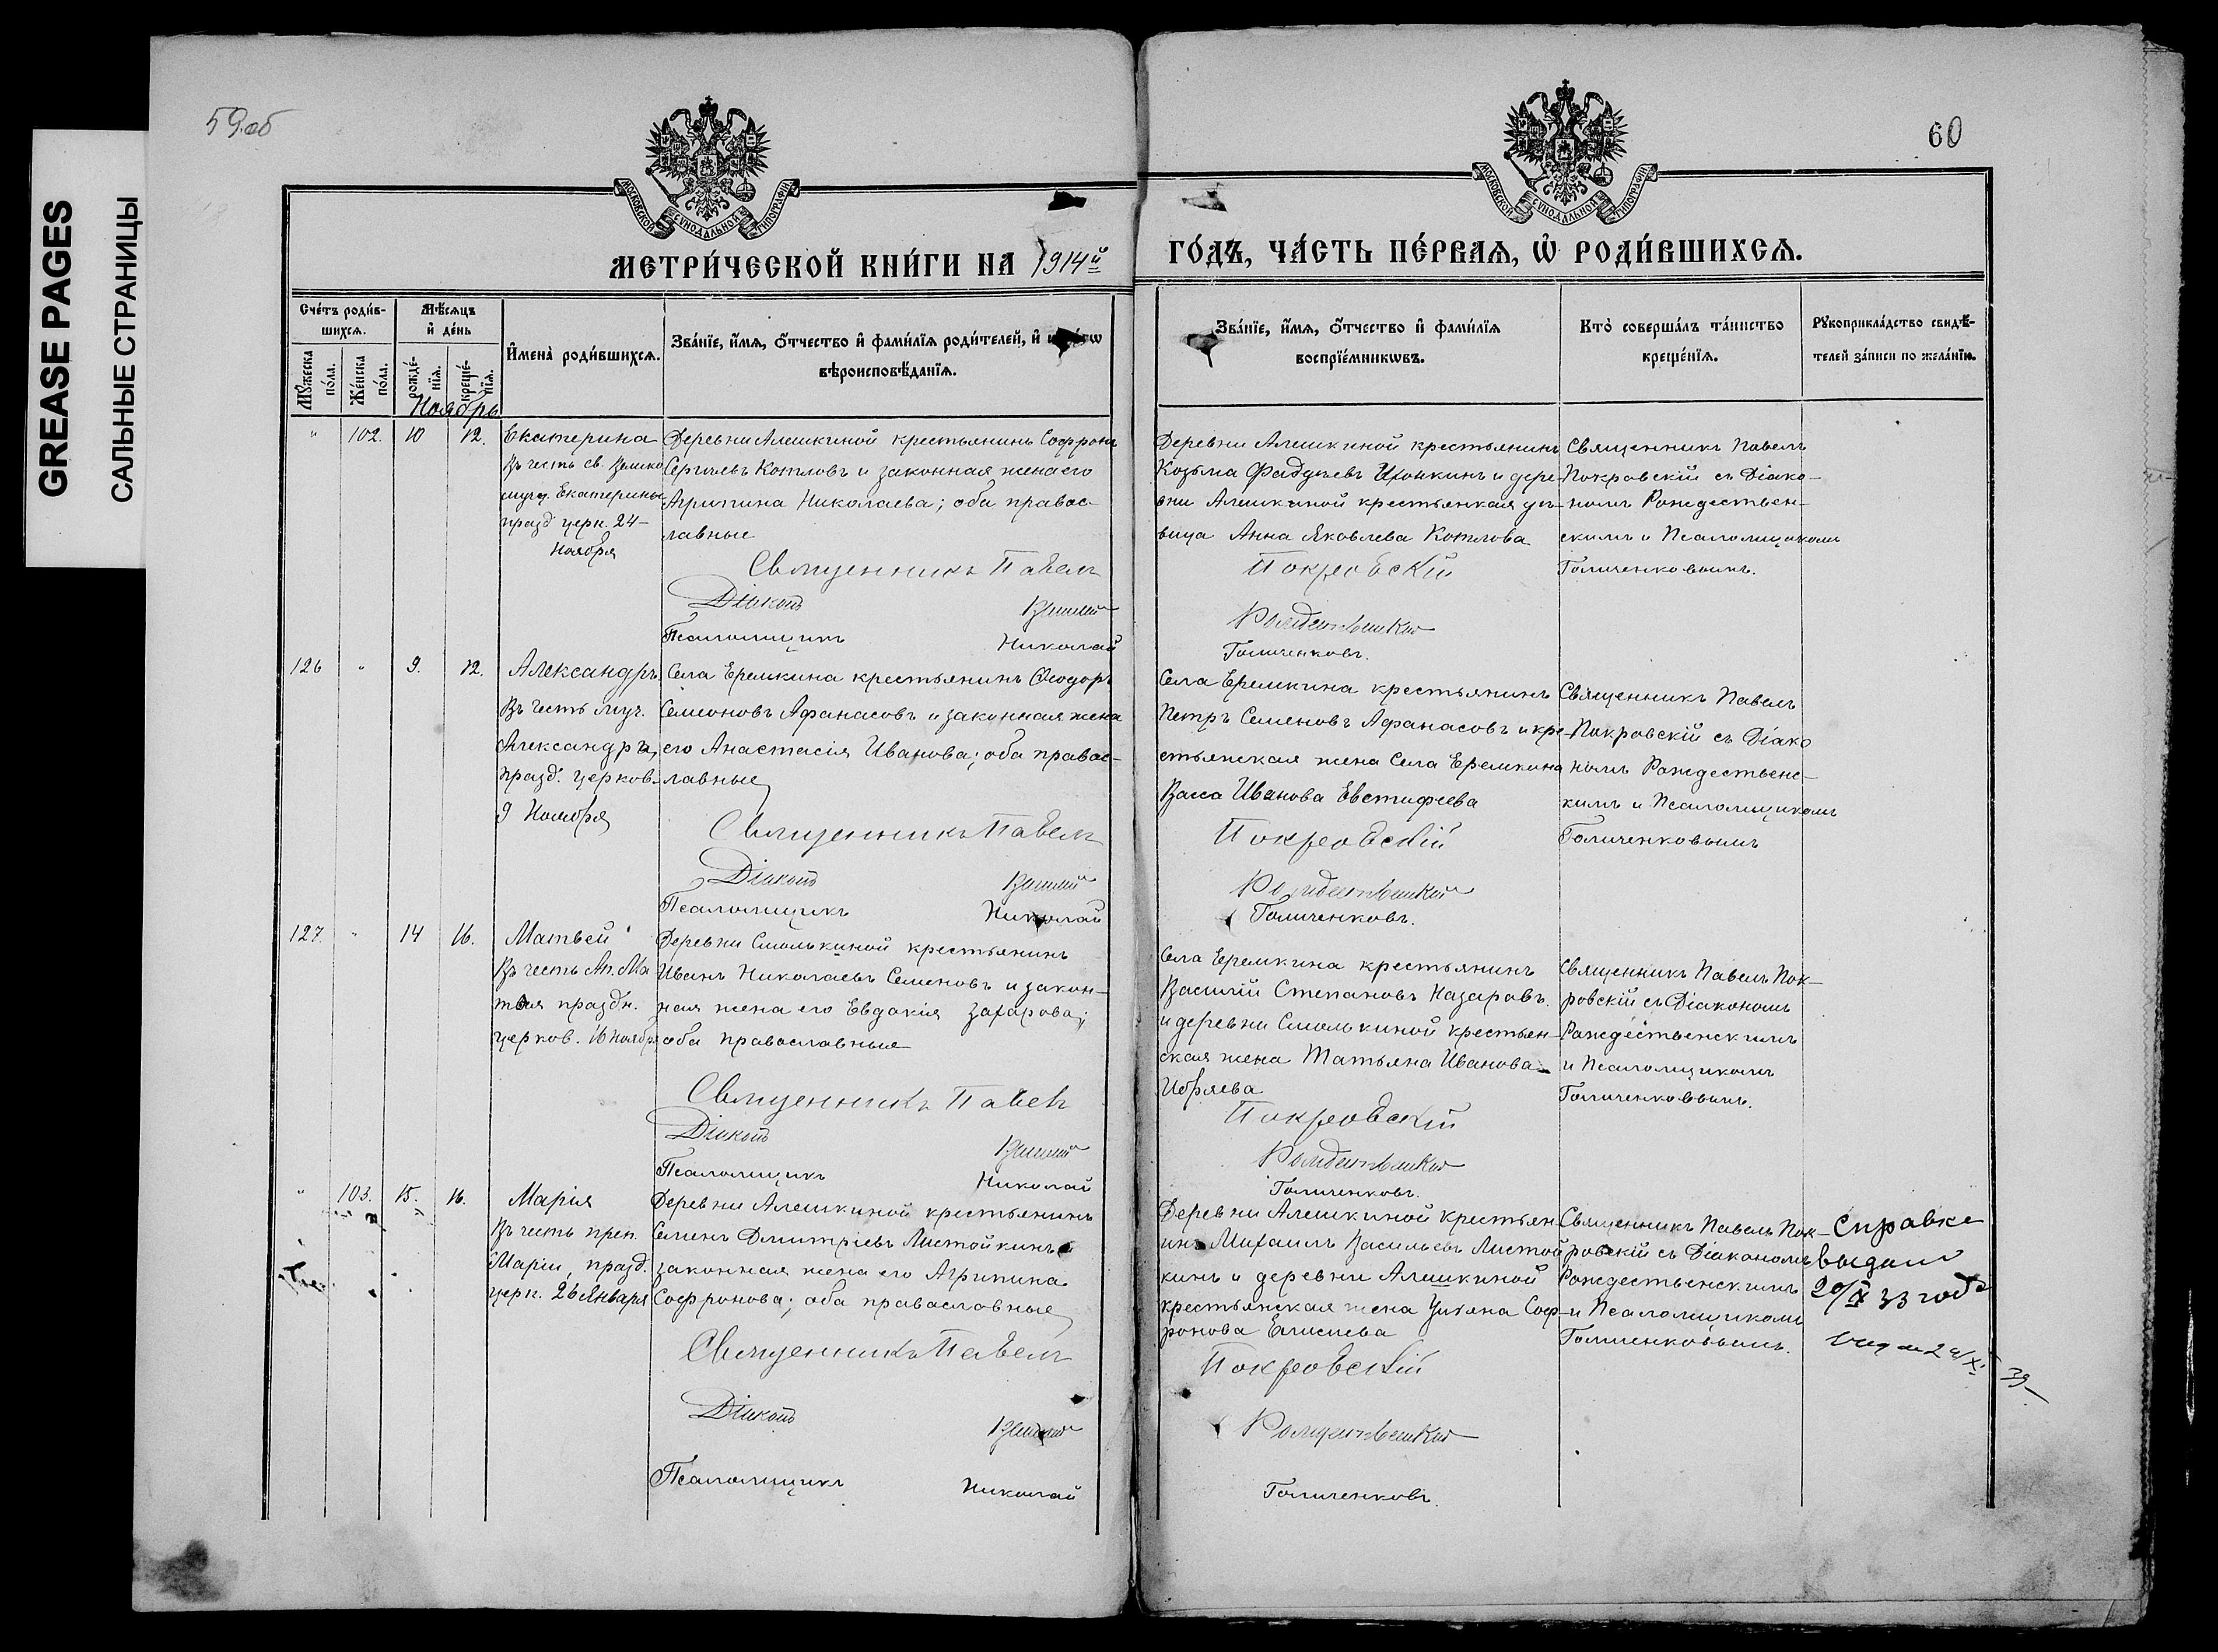 GREASE PAGES
САЛЬНЫЕ СТРАНИЦЫ
59об
60
МОСКОВСКОЙ СУНОДАЛЬНОЙ ТИПОГРАФІИ
МОСКОВСКОЙ СУНОДАЛЬНОЙ ТИПОГРАФІИ
МЕТРИ́ЧЕСКОЙ КНИ́ГИ НА 1914й
ГО́ДЪ, ЧА́СТЬ ПЕ́РВАѦ, Ѡ҆ РОДИ́ВШИХСѦ.
Сче́тъ роди́в-
шихсѧ.
Мꙋ́жеска
по́ла.
Же́нска
по́ла.
Мѣ́сѧцъ
и҆ де́нь
рожде́-
нїѧ.
креще́-
нїѧ.
И҆мена̀ роди́вшихсѧ.
Зва́нїе, и҆́мѧ, ѻ҆́тчество и҆ фами́лїѧ роди́телей, и҆
вѣроисповѣ́данїѧ.
Зва́нїе, и҆́мѧ, ѻ҆́тчество и҆ фами́лїѧ
воспрїе́мникѡвъ.
Кто̀ соверша́лъ та́инство
креще́нїѧ.
Рꙋкоприкла́дство свидѣ́-
телей за́писи по жела́нїю.
Ноябрь
" 102. 10 12.
Екатерина
Въ честь св. Велико
муч. Екатерины
празд церк. 24-
Ноября
Деревни Алешкиной крестьянинъ Софронъ
Сергѣевъ Котловъ и законная жена его
Агрипина Николаева; оба правос-
лавные
Священникъ Павелъ
Діаконъ Василій
Псаломщикъ Николай
Деревни Алешкиной крестьянинъ
Козьма Фадѣевъ и дере-
вни Алешкиной крестьянская дѣ-
вица Анна Яковлева Котлова
Покровскій
Рождественскій
Голиченковъ.
Священникъ Павелъ
Покровскій съ Діако-
номъ Рождествен-
скимъ и Псаломщикомъ
Голиченковымъ.
126 " 9. 12.
Александръ
Въ честь муч.
Александра,
празд. церков.
9 Ноября
Села Еремкина крестьянинъ Ѳеодоръ
Семеновъ Афанасовъ и законная жена
его Анастасія Иванова; оба правос-
лавные
Священникъ Павелъ
Діаконъ Василій
Псаломщикъ Николай
Села Еремкина крестьянинъ
Петръ Семеновъ Афанасовъ и кре-
стьянская жена Села Еремкина
Васса Иванова Евстифеева
Покровскій
Рождественскій
Голиченковъ.
Священникъ Павелъ
Покровскій съ Діако
номъ Рождественс-
кимъ и Псаломщикомъ
Голиченковымъ
127. " 14 16.
Матвей
Въ честь Ап. Ма
твея праздн.
церков. 16 ноября
Деревни Смолькиной крестьянинъ
Иванъ Николаевъ Семеновъ и закон-
ная жена его Евдокія Захарова;
оба православные
Священникъ Павелъ
Діаконъ Василій
Псаломщикъ Николай
Села Еремкина крестьянинъ
Василій Степановъ Назаровъ.
и деревни Смолькиной крестьян-
ская жена Татьяна Иванова
Ибряева
Покровскій
Рождественскій
Голиченковъ.
Священникъ Павелъ Пок-
ровскій съ Діакономъ
Рождественскимъ
и Псаломщикомъ
Голиченковымъ.
" 103. 15. 16.
Марія
Въ честь преп.
Маріи, празд.
церк. 26 Января
Деревни Алешкиной крестьянинъ
Семенъ Дмитріевъ Листойкинъ и
законная жена его Агрипина
Софронова; оба православные
Священникъ Павелъ
Діаконъ Василій
Псаломщикъ Николай
Деревни Алешкиной Крестьян-
инъ Михаилъ Васильевъ Листой
кинъ и деревни Алешкиной
крестьянская жена Улiяна Соф-
ронова Елисиева
Покровскій
Рождественскій
Голиченковъ.
Священникъ Павелъ Пок-
ровскій съ Діакономъ
Рождественскимъ
и Псаломщикомъ
Голиченковымъ.
справке
выдан
20/IX 33 года